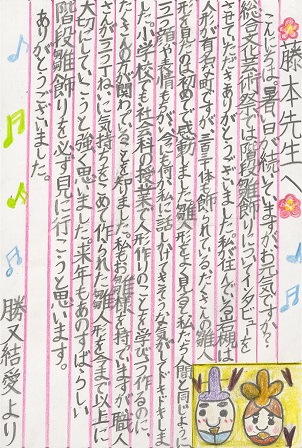 藤本先生へ
こんにちは。暑い日が続いていますがお元気ですか?
総合文化芸術祭では階段雛飾りについてインタビューを
させていただきありがとうございました。私が住んでいる岩槻は
人形が有名な町ですが、三百千体も飾られている、たくさんの雛人
形を見たのは初めてで感動しました。雛人形をよく見ると私たち人間と同じよう
に三つ顔や表情もちがい、今にも何か私に話しかけてきそうな気がしてドキドキしま
した。小学校でも社会科の授業で人形作りのことを学び、一つ作るのに、
たくさんの方が関わっていることを知りました。私もお雛様を持っていますが、職人
さんが一つ一つていねいに気持ちをこめて作られた雛人形を今まで以上に
大切にしていこうと強く思いました。来年もあのすばらしい
階段雛飾りを必ず見に行こうと思います。
ありがとうございました。
勝又結愛より